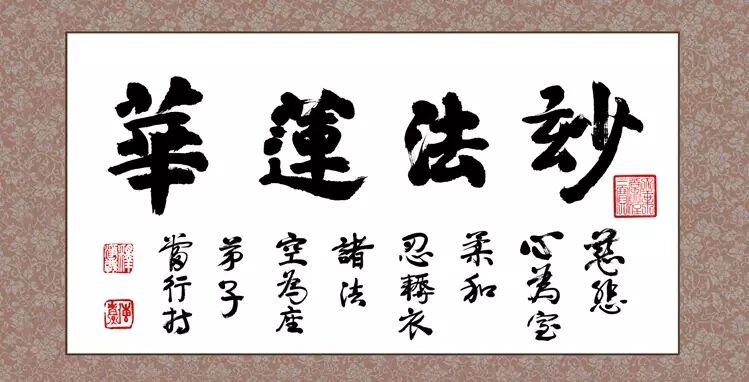 玅法蓮華
慈悲
心為室
柔和
忍耨衣
諸法
空為座
弟子
當行持